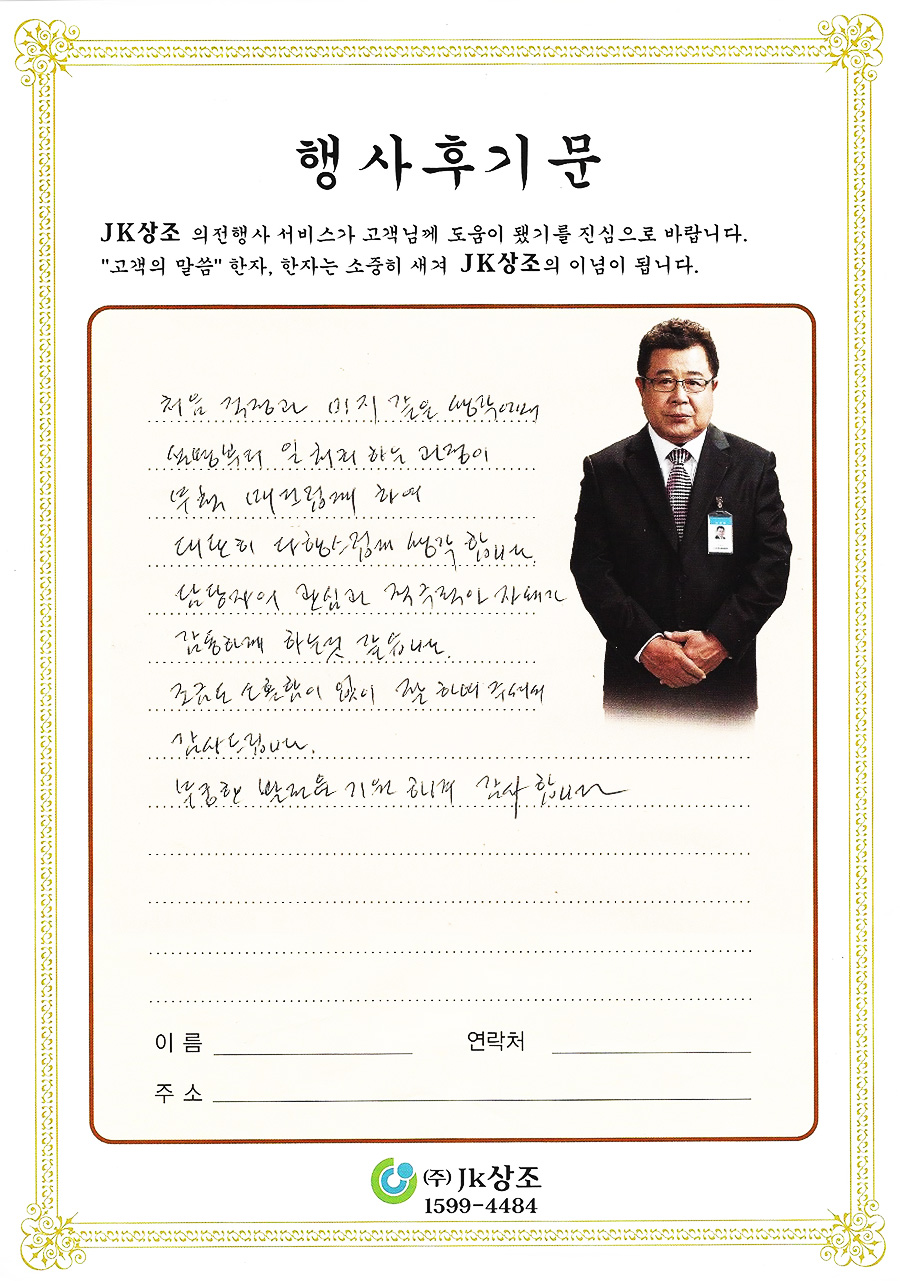 행사후기문
JK상조 의전행사 서비스가 고객님께 도움이 됐기를 진심으로 바랍니다.
"고객의 말씀" 한자, 한자는 소중히 새겨 JK상조의 이념이 됩니다.
처음 걱정과 미지 같은 생각에서
설명부터 일 처리 하는 과정이
무척 매끄럽게 하여
대단히 다행스럽게 생각 합니다
담당자의 관심과 적극적인 자세가
감동하게 하는것 같읍니다.
조금도 소홀함이 없이 잘 하여 주셔서
감사드립니다.
무궁한 발전을 기원 하며 감사 합니다
이 름
연락처
주 소
(주) Jk상조
1599-4484